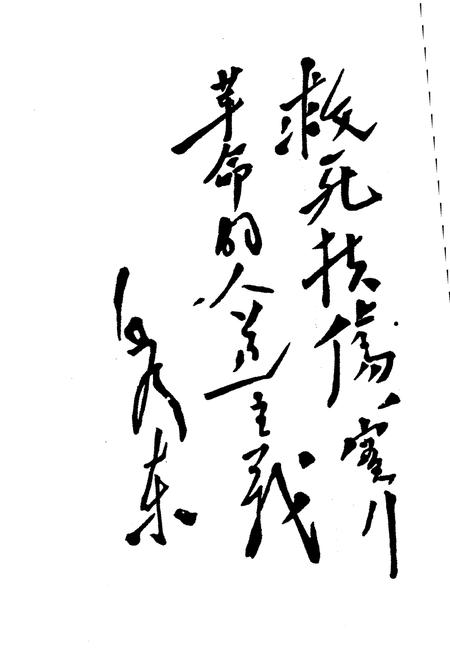 救死扶傷，實行
革命的人道主義
毛泽东